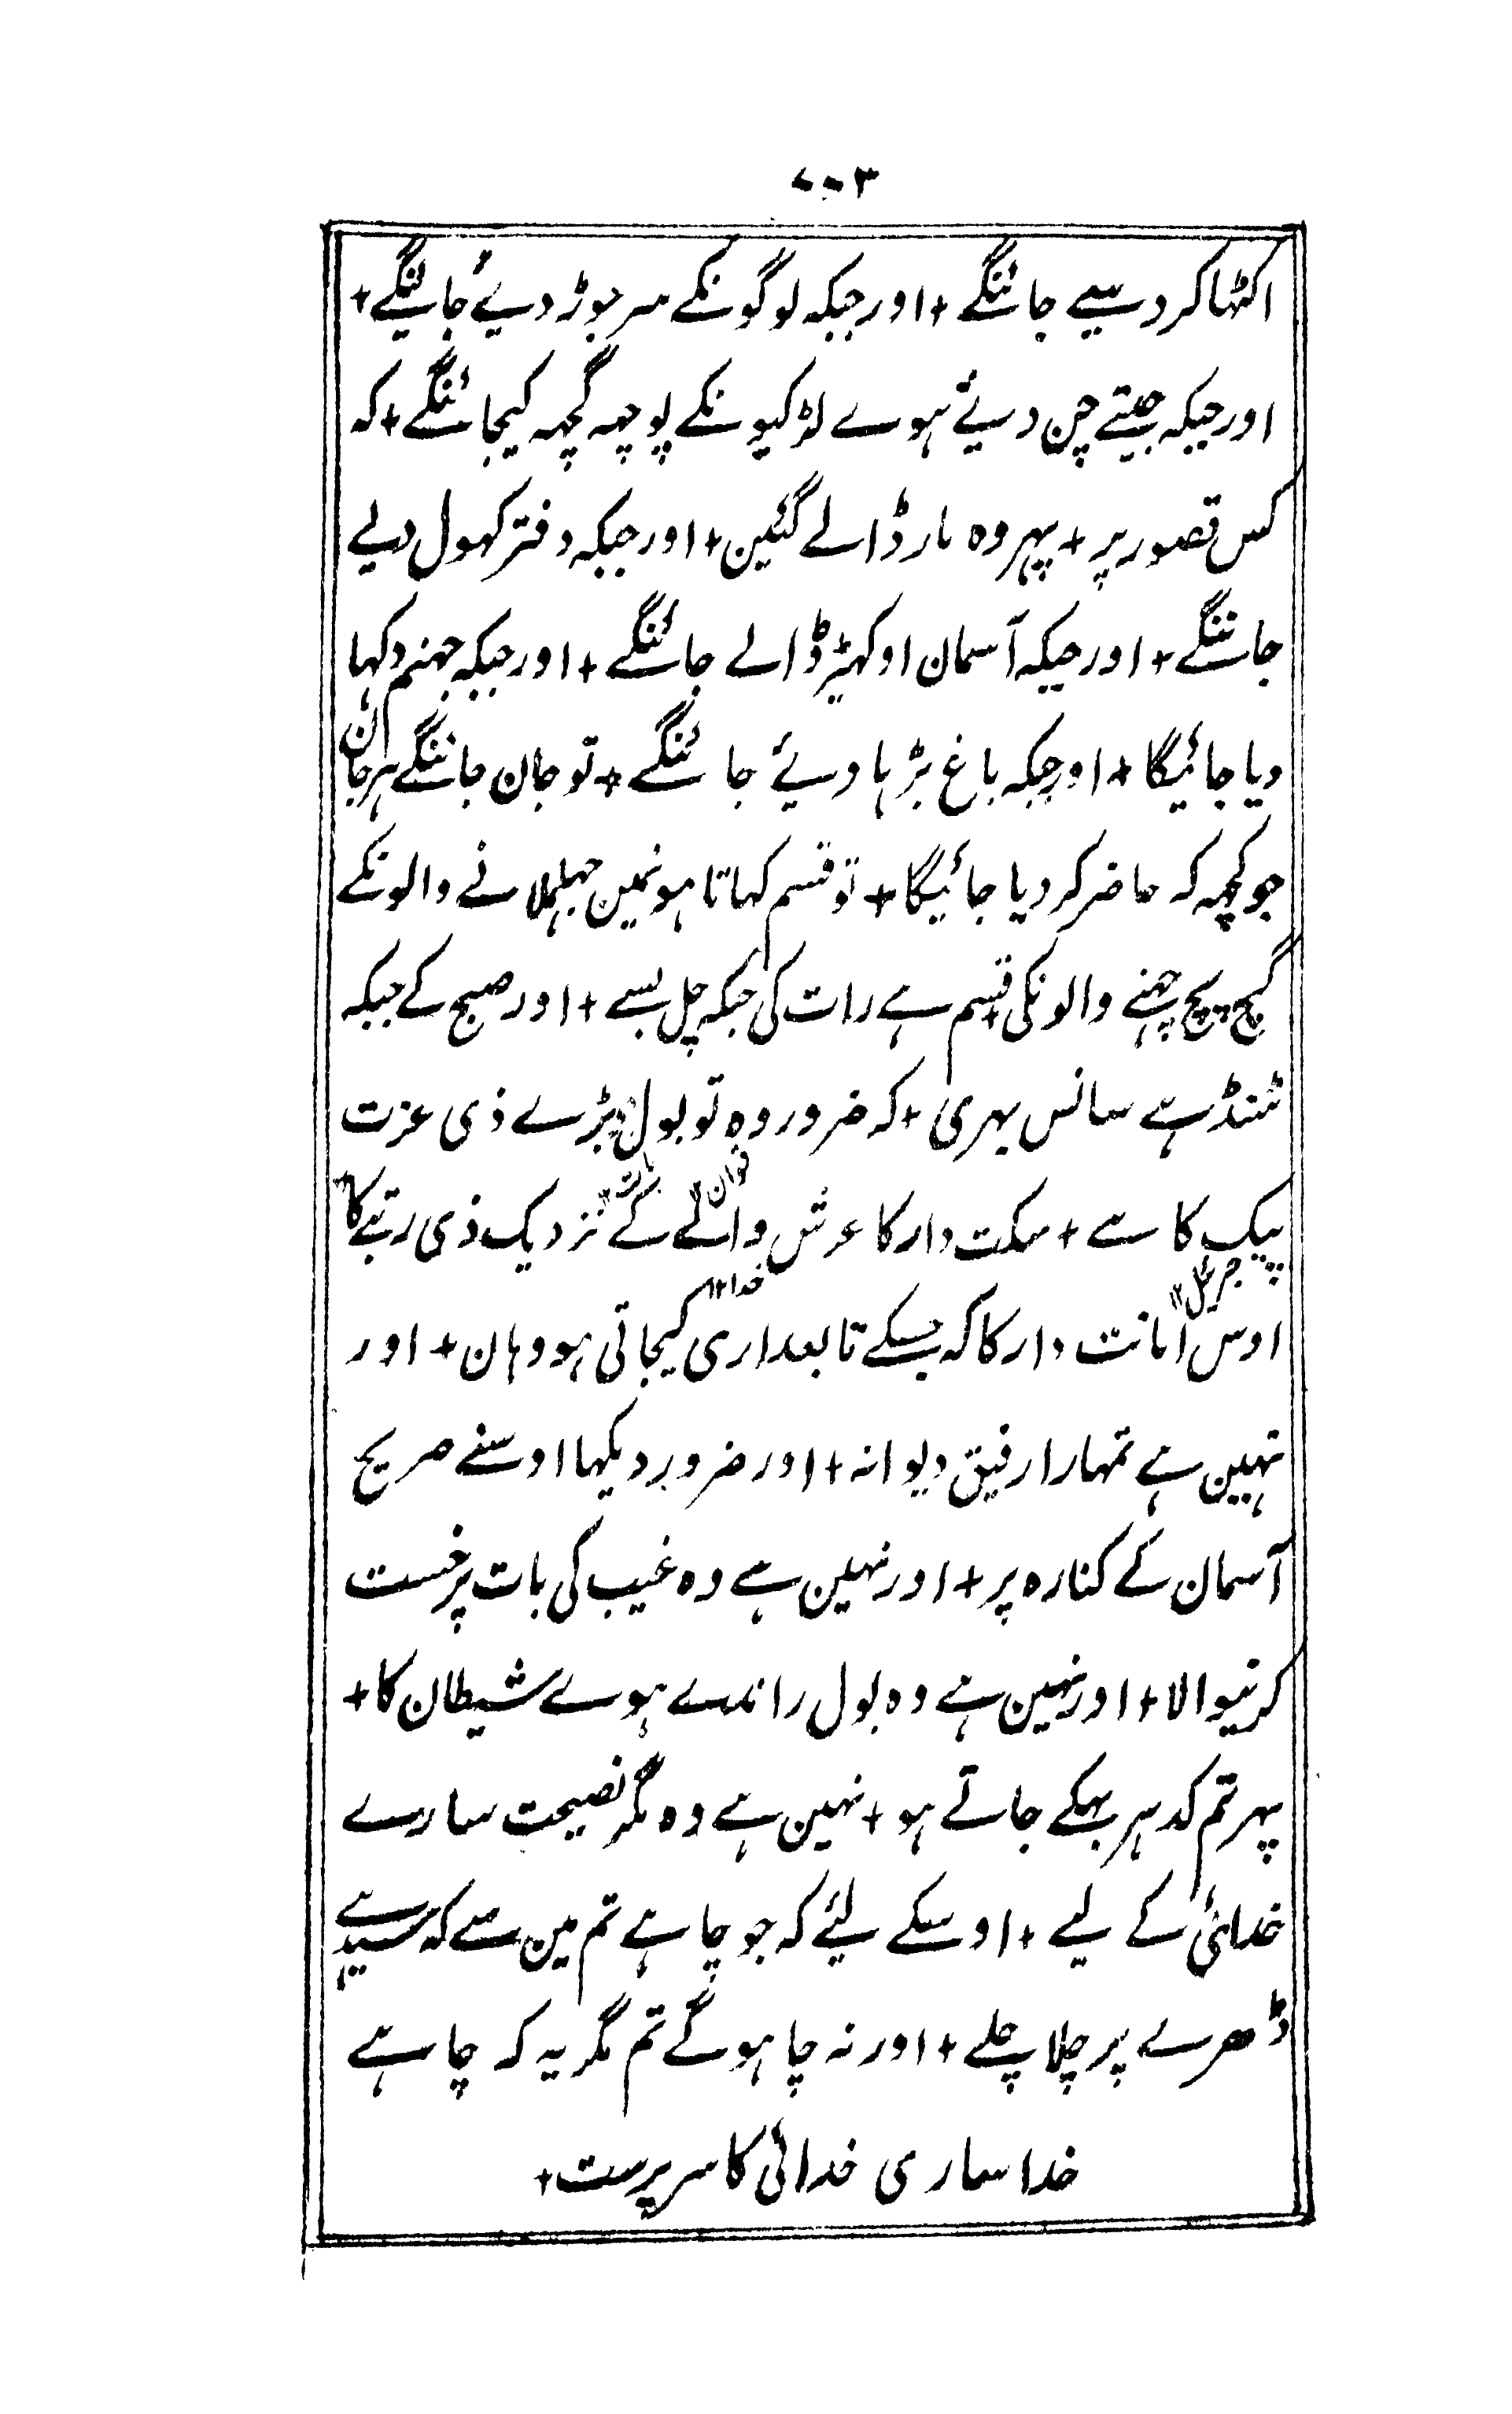 ۷۰۳
اکٹہا کر دسیے جائنگے + اور جبکہ لوگونکے سر جوڑ دیے جائینگے +
اور جبکہ جیتے چن دیئے ہوے لڑکیونکے پوچہہ گچہہ کیجائنگے + کہ
کس قصور پر + پہر وہ مار ڈالے گئین + اور جبکہ دفتر کہول دیے
جائنگے + اور جبکہ آسمان اوکہیڑ ڈالے جائنگے + اور جبکہ جہنم دکہا
دیا جائیگا + اور جبکہ باغ بڑہا دیئے جائنگے + تو جان جائنگے ہر جان
جو کچہہ کہ حاضر کر دیا جائیگا + تو قسم کہاتا ہونمین جہلملانے والونکے
گیچ پیچ چہنے والونکی + قسم ہے رات کی جبکہ چل بسے + اور صبح کے جبکہ
ٹہنڈہے سانس بہری + کہ ضرور وہ تو بول بڑے ذی عزت
قرآن ۱۲
پیک کا ہے + سکت دار کا عرش والے کے نزدیک ذی رتبے کا +
جبریل ۱۲ خدا ۱۲
اوس امانت دار کا کہ جسکے تابعداری کیجاتی ہو وہان + اور
نہین ہے تمہارا رفیق دیوانہ + اور ضرور دیکہا اوسنے صریح
آسمان کے کنارہ پر + اور نہین ہے وہ غیب کی بات پر خست
کرنیوالا + اور نہین ہے وہ بول راندے ہوے شیطان کا +
پہر تم کدہر بہکے جاتے ہو + نہین ہے وہ مگر نصیحت سارے
خدائی کے لیے + اوسکے لیئے کہ جو چاہے تم مین سے کہ سیدہے
ڈھرے پر چلا چلے + اور نہ چاہوگے تم مگر یہ کہ چاہے
خدا ساری خدائی کا سرپرست +